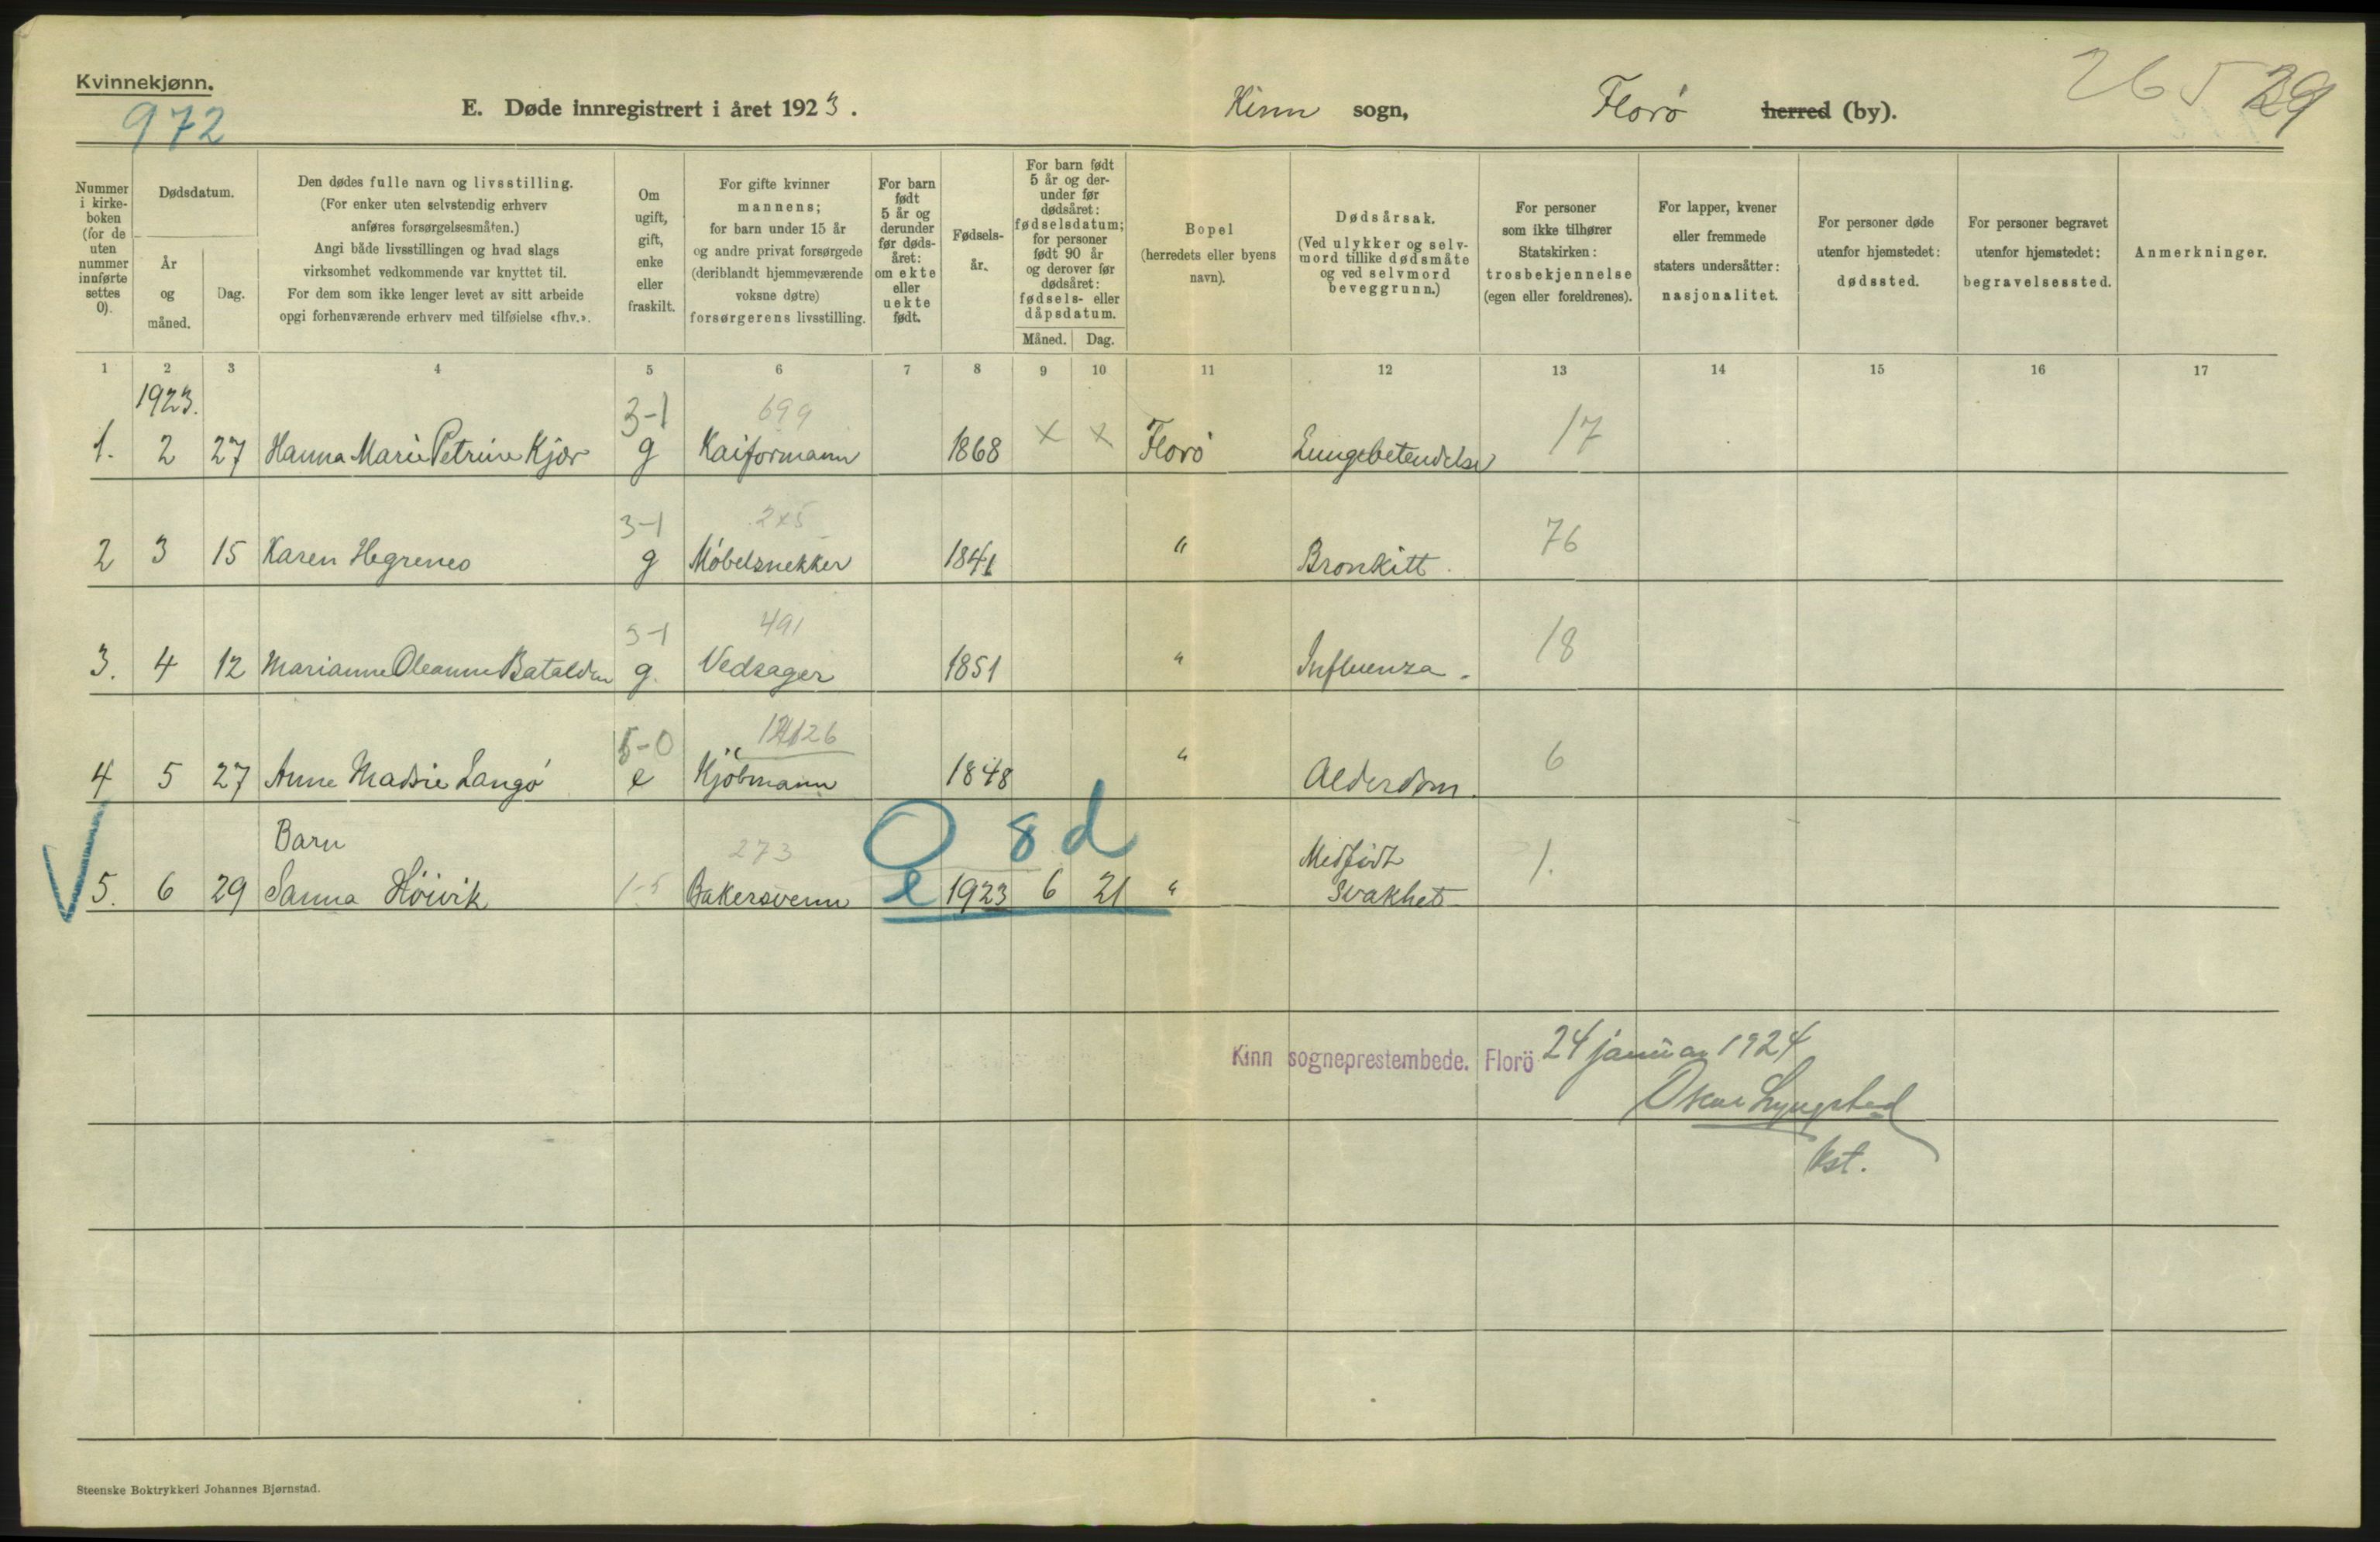 Kvinnekjønn.
972
E. Døde innregistrert i året 1923. Kinn sogn, Florø herred (by). 265 29
Nummer i kirke-boken (for de uten nummer innførte settes 0).
Dødsdatum.
År og måned.
Dag.
Den dødes fulle navn og livsstilling.
(For enker uten selvstendig erhverv
anføres forsørgelsesmåten.)
Angi både livsstillingen og hvad slags
virksomhet vedkommende var knyttet til.
For dem som ikke lenger levet av sitt arbeide
opgi forhenværende erhverv med tilføielse «fhv.».
Om
ugift,
gift,
enke
eller
fraskilt.
For gifte kvinner
mannens;
for barn under 15 år
og andre privat forsørgede
(deriblandt hjemmeværende
voksne døtre)
forsørgerens livsstilling.
For barn
født
5 år og
derunder
før døds-
året:
om ekte
eller
uekte
født.
Fødsels-
år.
For barn født
5 år og der-
under før
dødsåret:
fødselsdatum;
for personer
født 90 år
og derover før
dødsåret:
fødsels- eller
dåpsdatum.
Måned. Dag.
Bopel
(herredets eller byens
navn).
Dødsårsak.
(Ved ulykker og selv-
mord tillike dødsmåte
og ved selvmord
beveggrunn.)
For personer
som ikke tilhører
Statskirken:
trosbekjennelse
(egen eller foreldrenes).
For lapper, kvener
eller fremmede
staters undersåtter:
nasjonalitet.
For personer døde
utenfor hjemstedet:
dødssted.
For personer begravet
utenfor hjemstedet:
begravelsessted.
Anmerkninger.
1 2 3 4 5 6 7 8 9 10 11 12 13 14 15 16 17
1923.
3-1 699
1. 2 27 Hanna Marie Petrine Kjær g Kaiformann 1868 x x Florø Lungebetendelse 17
3-1 245
2 3 15 Karen Hegrenes g Møbelsnekker 1841 " Bronkitt. 76
3-1 491
3. 4 12 Marianne Oleanne Batalden g. Vedsager 1851 " Influenza. 18
5-0 126
4 5 27 Anne Madsie Langø e Kjøbmann 1848 " Alderdom. 6
Barn 273 0 8 d Medfødt
5. 6 29 Sanna Höivik 1-5 Bakersvenn e 1923 6 21 " Svakhet 1.
Kinn sogneprestembede. Florö 24 januar 1924
Oskar Lyngstad
kst.
Steenske Boktrykkeri Johannes Bjørnstad.